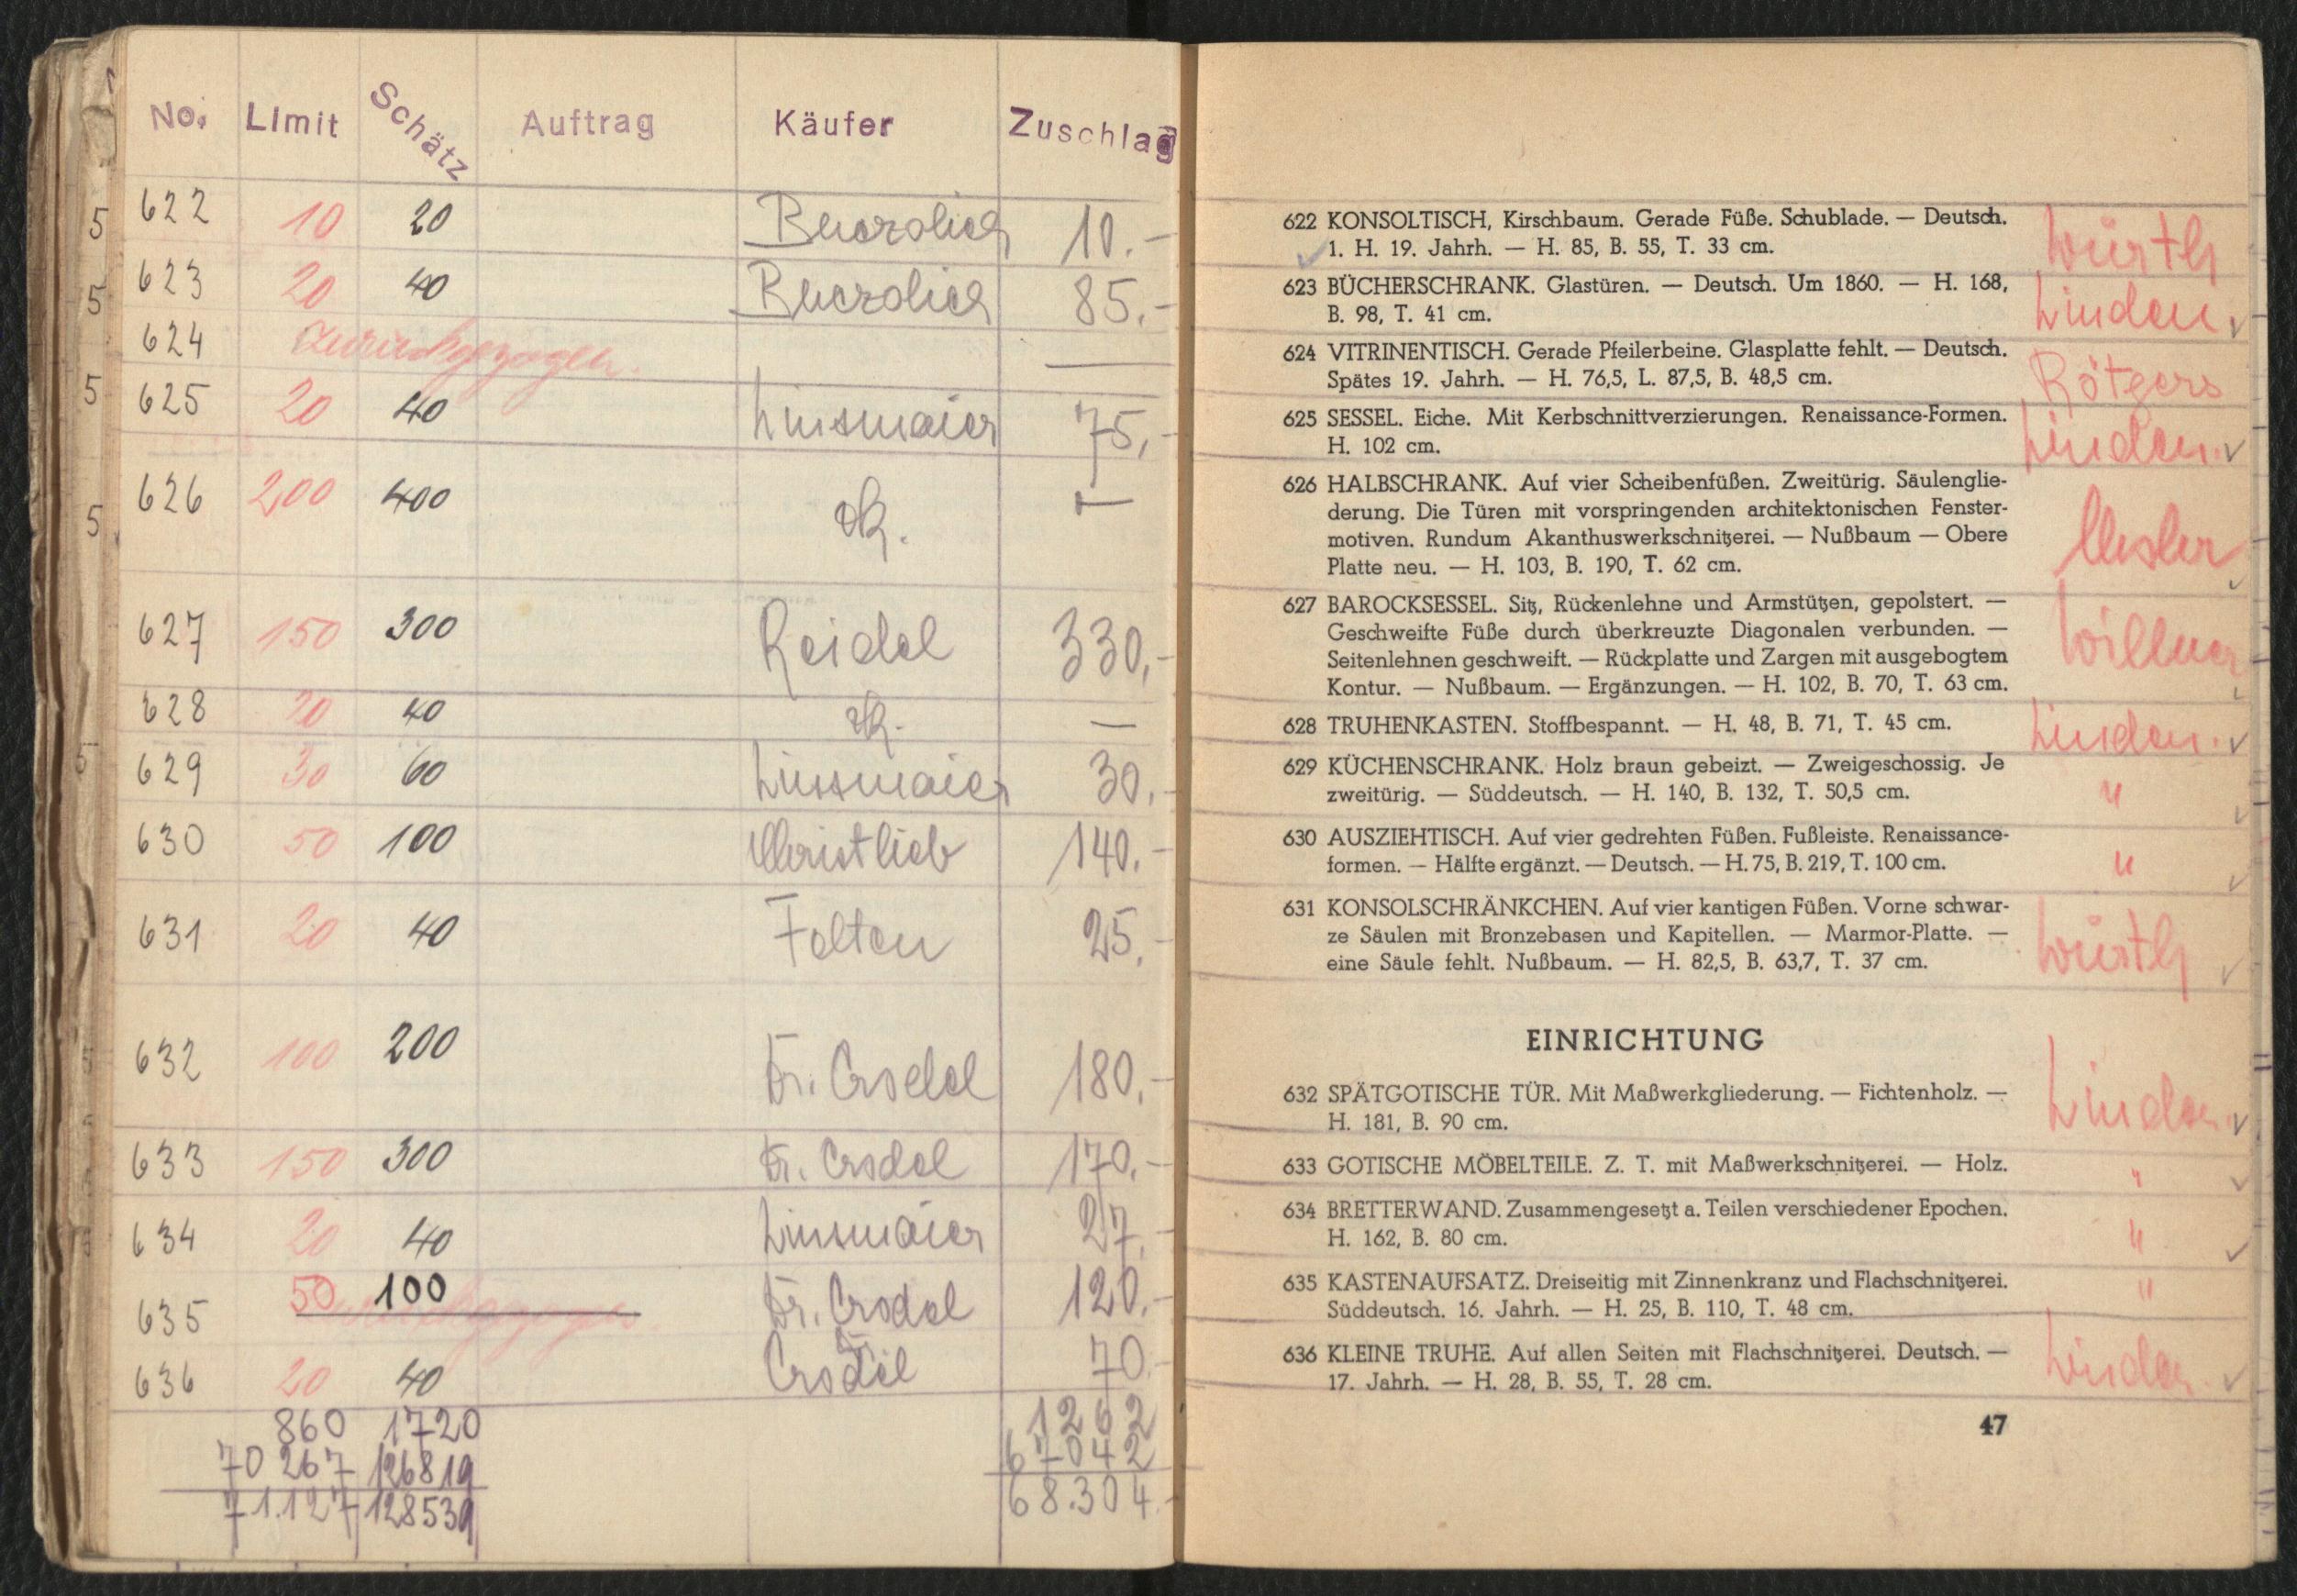 No. Limit Schätz Auftrag Käufer Zuschlag
622 10 20 10.-
623 20 40 85.-
624 zurückgezogen. —
625 20 40 Linsmaier 75,-
626 200 400 —
627 150 300 Reidel 330,-
628 20 40 —
629 30 60 Linsmaier 30,-
630 50 100 Christlieb 140.-
631 20 40 Felten 25,-
632 100 200 Dr. Crodel 180,-
633 150 300 Dr. Crodel 170.-
634 20 40 Linsmaier 27,-
635 50 100 Dr. Crodel 120,-
636 20 40 Dr. Crodel 70.-
860 1720 1262
70 267 126819 67042
71.127 128539 68.304.-
5
5
5
5
5
622 KONSOLTISCH, Kirschbaum. Gerade Füße. Schublade. — Deutsch.
1. H. 19. Jahrh. — H. 85, B. 55, T. 33 cm.
Würth
623 BÜCHERSCHRANK. Glastüren. — Deutsch. Um 1860. — H. 168,
B. 98, T. 41 cm.
Linden
624 VITRINENTISCH. Gerade Pfeilerbeine. Glasplatte fehlt. — Deutsch.
Spätes 19. Jahrh. — H. 76,5, L. 87,5, B. 48,5 cm.
Rötgers
625 SESSEL. Eiche. Mit Kerbschnittverzierungen. Renaissance-Formen.
H. 102 cm.
Linden.
626 HALBSCHRANK. Auf vier Scheibenfüßen. Zweitürig. Säulenglie-
derung. Die Türen mit vorspringenden architektonischen Fenster-
motiven. Rundum Akanthuswerkschnitzerei. — Nußbaum — Obere
Platte neu. — H. 103, B. 190, T. 62 cm.
627 BAROCKSESSEL. Sitz, Rückenlehne und Armstützen, gepolstert. —
Geschweifte Füße durch überkreuzte Diagonalen verbunden. —
Seitenlehnen geschweift. — Rückplatte und Zargen mit ausgebogtem
Kontur. — Nußbaum. — Ergänzungen. — H. 102, B. 70, T. 63 cm.
Willner
628 TRUHENKASTEN. Stoffbespannt. — H. 48, B. 71, T. 45 cm.
Linden.
629 KÜCHENSCHRANK. Holz braun gebeizt. — Zweigeschossig. Je
zweitürig. — Süddeutsch. — H. 140, B. 132, T. 50,5 cm.
"
630 AUSZIEHTISCH. Auf vier gedrehten Füßen. Fußleiste. Renaissance-
formen. — Hälfte ergänzt. — Deutsch. — H. 75, B. 219, T. 100 cm.
"
631 KONSOLSCHRÄNKCHEN. Auf vier kantigen Füßen. Vorne schwar-
ze Säulen mit Bronzebasen und Kapitellen. — Marmor-Platte. —
eine Säule fehlt. Nußbaum. — H. 82,5, B. 63,7, T. 37 cm.
Würth
EINRICHTUNG
632 SPÄTGOTISCHE TÜR. Mit Maßwerkgliederung. — Fichtenholz. —
H. 181, B. 90 cm.
Linden.
633 GOTISCHE MÖBELTEILE. Z. T. mit Maßwerkschnitzerei. — Holz.
"
634 BRETTERWAND. Zusammengesetzt a. Teilen verschiedener Epochen.
H. 162, B. 80 cm.
"
635 KASTENAUFSATZ. Dreiseitig mit Zinnenkranz und Flachschnitzerei.
Süddeutsch. 16. Jahrh. — H. 25, B. 110, T. 48 cm.
"
636 KLEINE TRUHE. Auf allen Seiten mit Flachschnitzerei. Deutsch. —
17. Jahrh. — H. 28, B. 55, T. 28 cm.
Linden.
47